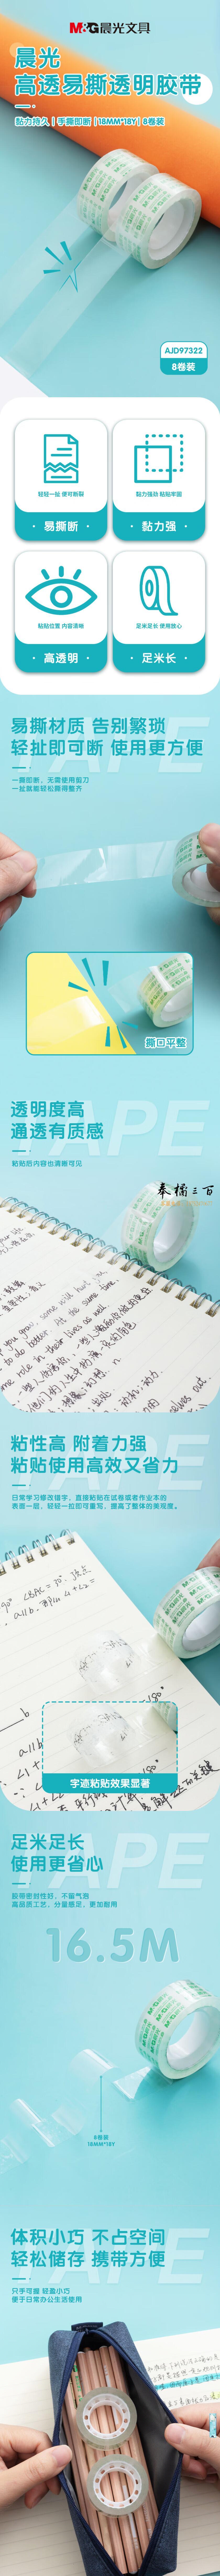 M&G晨光文具
晨光
高透易撕透明胶带
黏力持久 | 手撕即断 | 18MM*18Y | 8卷装
AJD97322
8卷装
轻轻一扯 便可断裂
黏力强劲 粘贴牢固
· 易撕断 ·
· 黏力强 ·
粘贴位置 内容清晰
足米足长 使用放心
· 高透明 ·
· 足米长 ·
TAPE
易撕材质 告别繁琐
轻扯即可断 使用更方便
一撕即断，无需使用剪刀
一扯就能轻松撕得整齐
撕口平整
TAPE
透明度高
通透有质感
粘贴后内容也清晰可见
奉橘三百
TAPE
粘性高 附着力强
粘贴使用高效又省力
日常学习修改错字，直接粘贴在试卷或者作业本的
表面一层，轻轻一拉即可重写，提高了整体的美观度。
字迹粘贴效果显著
TAPE
足米足长
使用更省心
胶带密封性好，不留气泡
高品质工艺，分量感足，更加耐用
16.5M
8卷装
18MM*18Y
TAPE
体积小巧 不占空间
轻松储存 携带方便
只手可握 轻盈小巧
便于日常办公生活使用